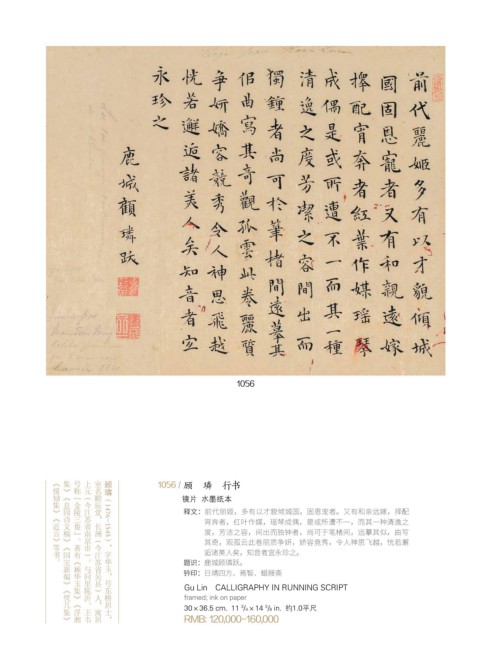 前代麗姬多有以才貌傾城
國固恩寵者又有和親遠嫁
擇配宵奔者紅葉作媒瑶琴
成偶是或所遭不一而其一種
清逸之度芳潔之容間出而
獨鍾者尚可於筆楮間遠摹其
倡曲寫其奇觀孤雲此卷麗質
爭妍嬌容競秀令人神思飛越
恍若邂逅諸美人矣知音者宜
永珍之
鹿城顧璘跋
1056
1056 / 顾 璘 行书
镜片 水墨纸本
释文：前代丽姬，多有以才貌倾城国，固恩宠者。又有和亲远嫁，择配
宵奔者，红叶作媒，瑶琴成偶，是或所遭不一，而其一种清逸之
度，芳洁之容，间出而独钟者，尚可于笔楮间，远摹其似，曲写
其奇，观孤云此卷丽质争妍，娇容竞秀，令人神思飞越，恍若邂
逅诸美人矣，知音者宜永珍之。
题识：鹿城顾璘跋。
Gu Lin CALLIGRAPHY IN RUNNING SCRIPT
framed; ink on paper
30×36.5 cm. 11 3/4×14 3/8 in. 约1.0平尺
RMB: 120,000-160,000